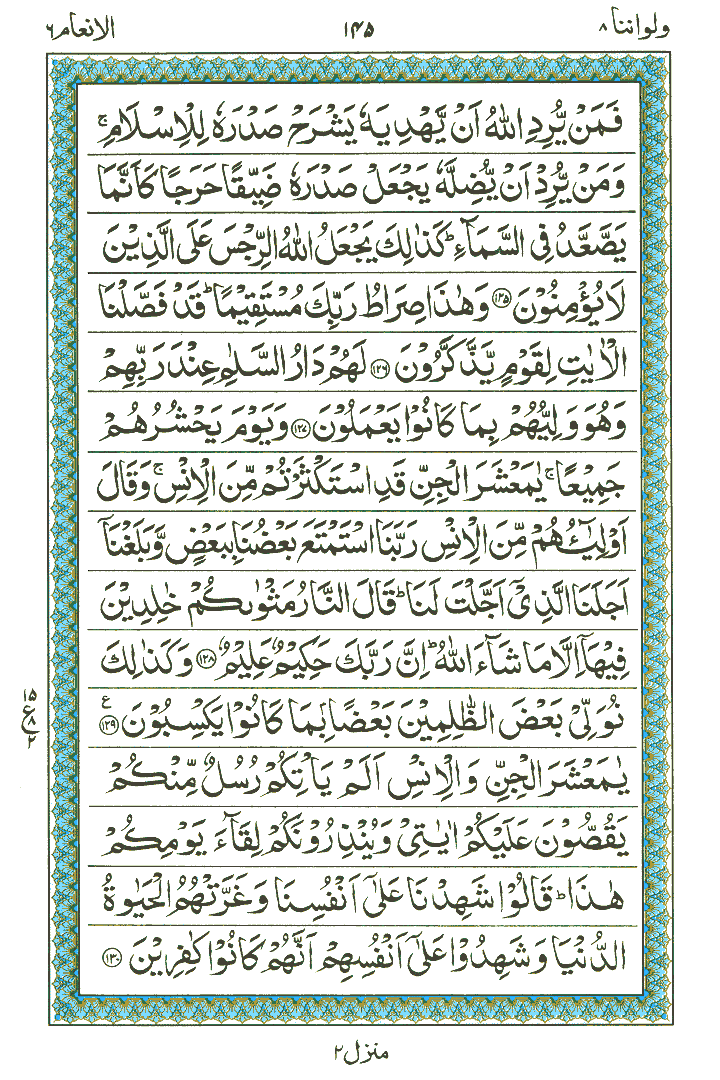 ولواننا ۸
۱۴۵
الانعام ۶
فَمَنْ يُّرِدِ اللّٰهُ اَنْ يَّهْدِيَهٗ يَشْرَحْ صَدْرَهٗ لِلْاِسْلَامِ ۚ
وَمَنْ يُّرِدْ اَنْ يُّضِلَّهٗ يَجْعَلْ صَدْرَهٗ ضَيِّقًا حَرَجًا كَاَنَّمَا
يَصَّعَّدُ فِى السَّمَآءِ ؕ كَذٰلِكَ يَجْعَلُ اللّٰهُ الرِّجْسَ عَلَى الَّذِيْنَ
لَا يُؤْمِنُوْنَ ۝۱۲۵ وَهٰذَا صِرَاطُ رَبِّكَ مُسْتَقِيْمًا ؕ قَدْ فَصَّلْنَا
الْاٰيٰتِ لِقَوْمٍ يَّذَّكَّرُوْنَ ۝۱۲۶ لَهُمْ دَارُ السَّلٰمِ عِنْدَ رَبِّهِمْ
وَهُوَ وَلِيُّهُمْ بِمَا كَانُوْا يَعْمَلُوْنَ ۝۱۲۷ وَيَوْمَ يَحْشُرُهُمْ
جَمِيْعًا ۚ يٰمَعْشَرَ الْجِنِّ قَدِ اسْتَكْثَرْتُمْ مِّنَ الْاِنْسِ ۚ وَقَالَ
اَوْلِيٰٓـُٔهُمْ مِّنَ الْاِنْسِ رَبَّنَا اسْتَمْتَعَ بَعْضُنَا بِبَعْضٍ وَّبَلَغْنَآ
اَجَلَنَا الَّذِىْٓ اَجَّلْتَ لَنَا ؕ قَالَ النَّارُ مَثْوٰىكُمْ خٰلِدِيْنَ
فِيْهَآ اِلَّا مَا شَآءَ اللّٰهُ ؕ اِنَّ رَبَّكَ حَكِيْمٌ عَلِيْمٌ ۝۱۲۸ وَكَذٰلِكَ
نُوَلِّىْ بَعْضَ الظّٰلِمِيْنَ بَعْضًۢا بِمَا كَانُوْا يَكْسِبُوْنَ ۝۱۲۹ ع
۱۵
ع ۸
۲
يٰمَعْشَرَ الْجِنِّ وَالْاِنْسِ اَلَمْ يَاْتِكُمْ رُسُلٌ مِّنْكُمْ
يَقُصُّوْنَ عَلَيْكُمْ اٰيٰتِىْ وَيُنْذِرُوْنَكُمْ لِقَآءَ يَوْمِكُمْ
هٰذَا ؕ قَالُوْا شَهِدْنَا عَلٰٓى اَنْفُسِنَا وَغَرَّتْهُمُ الْحَيٰوةُ
الدُّنْيَا وَشَهِدُوْا عَلٰٓى اَنْفُسِهِمْ اَنَّهُمْ كَانُوْا كٰفِرِيْنَ ۝۱۳۰
منزل ۲